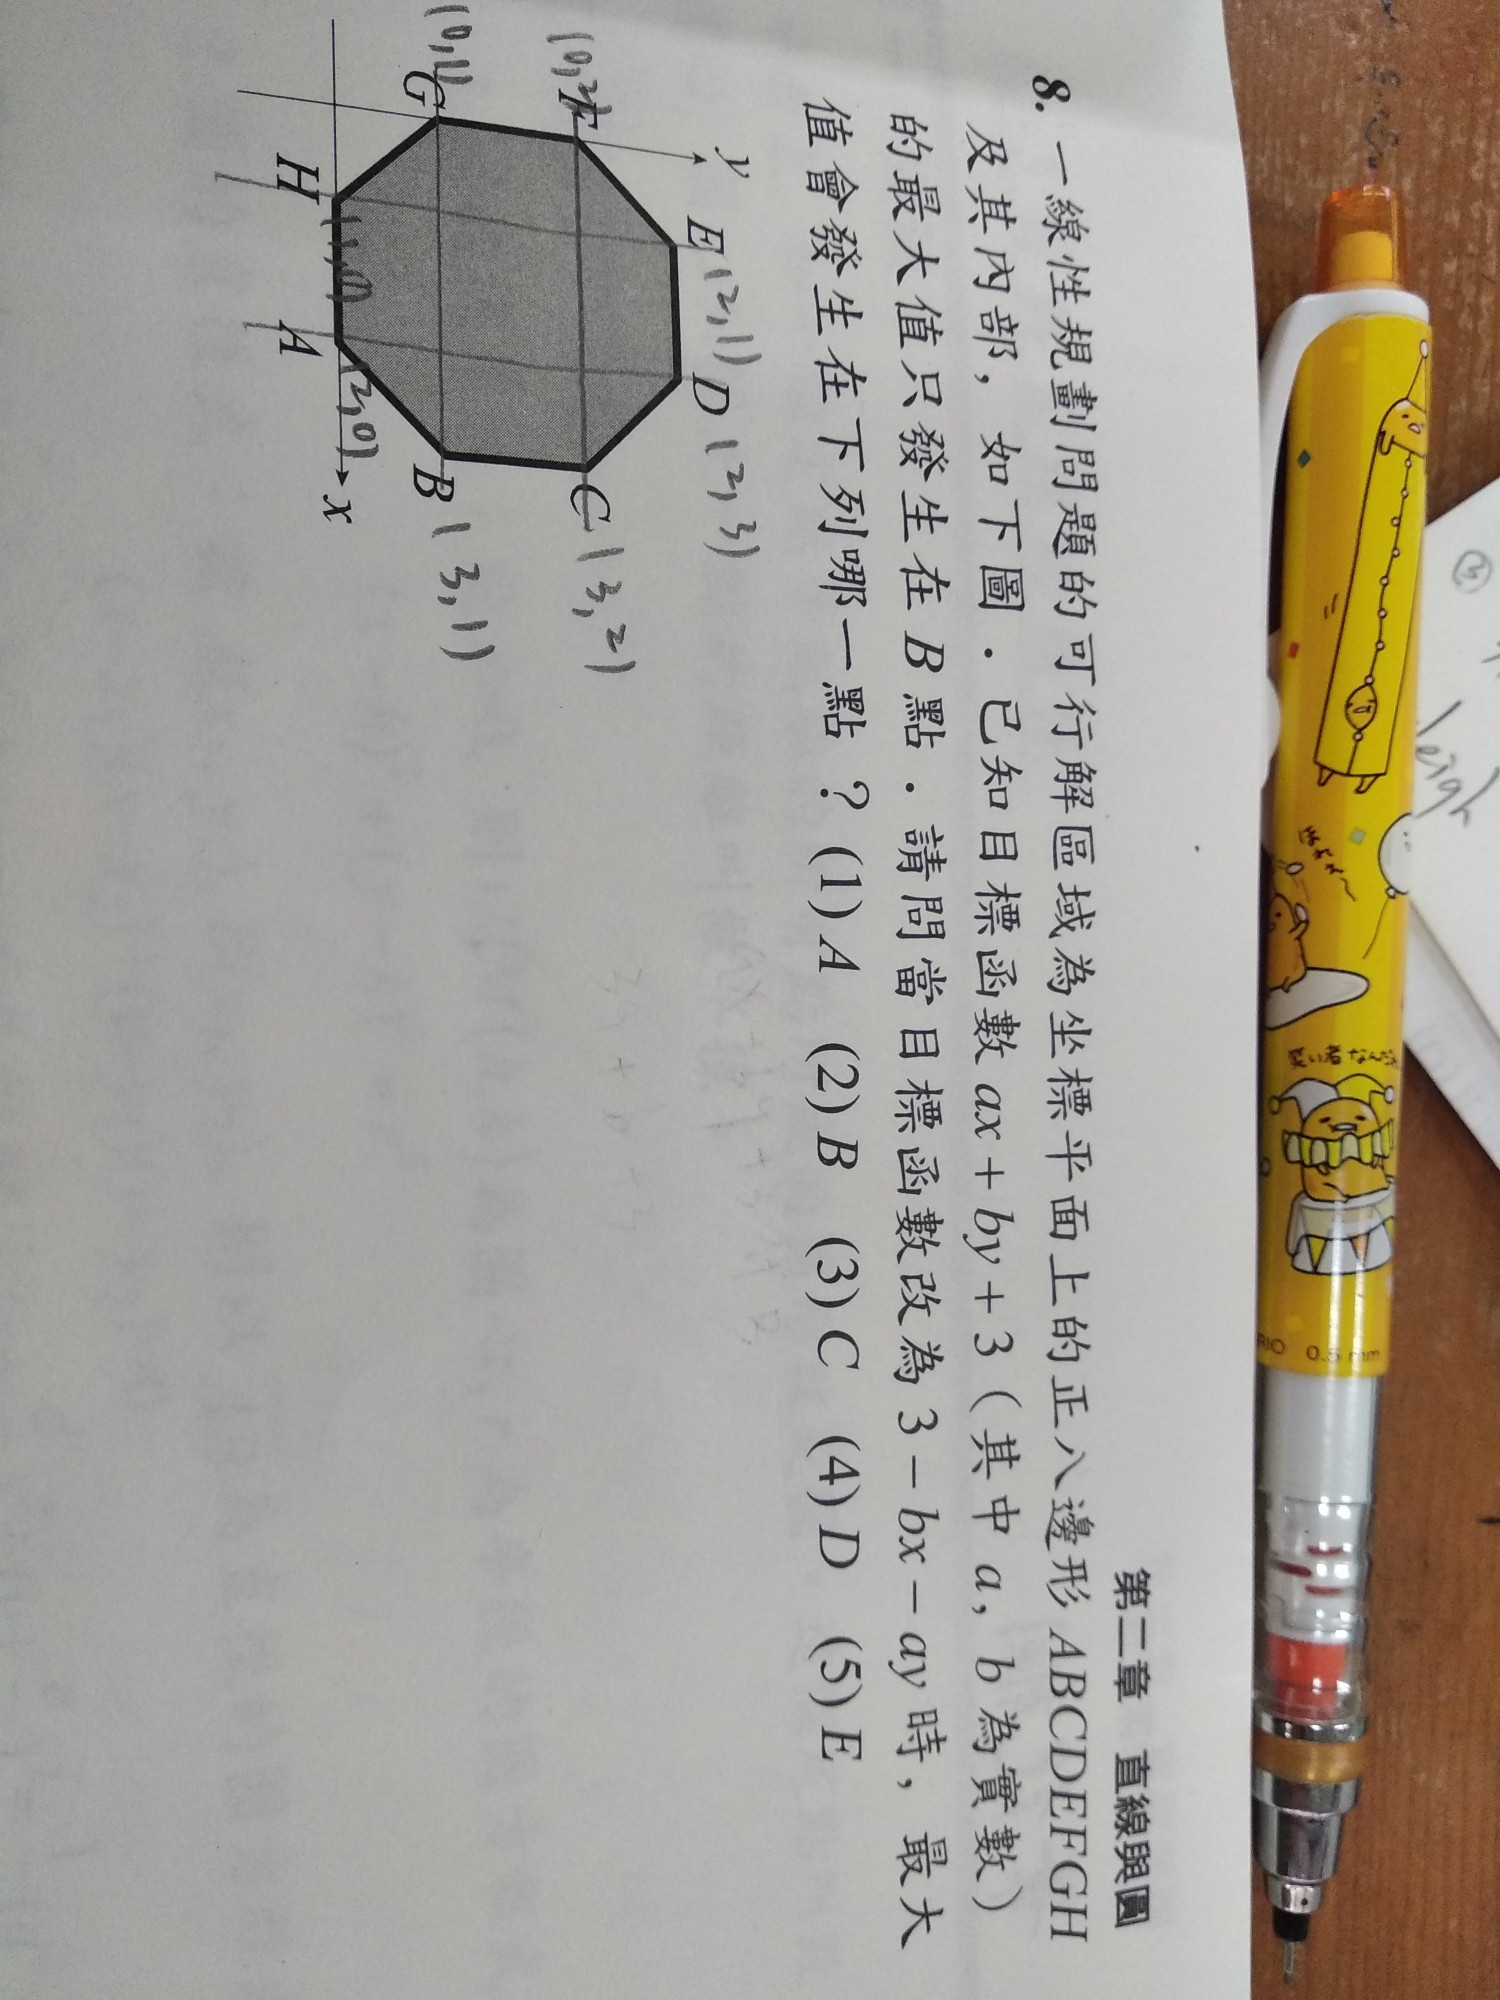 第二章 直線與圓
8. 一線性規劃問題的可行解區域為坐標平面上的正八邊形 ABCDEFGH
及其內部，如下圖．已知目標函數 ax + by + 3 (其中 a, b 為實數)
的最大值只發生在 B 點．請問當目標函數改為 3 − bx − ay 時，最大
值會發生在下列哪一點？(1) A (2) B (3) C (4) D (5) E
y
E (2,1)
D (2,3)
(0,2) F
C (3,2)
(0,1) G
B (3,1)
H (1,0)
A (2,0)
x
3a + b + 3
leigh
③
笑い者
0.5 mm